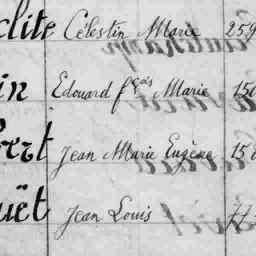 clite Célestin Marie 259
in Edouard fçois Marie 150
bert Jean Marie Eugène 15
uët Jean Louis